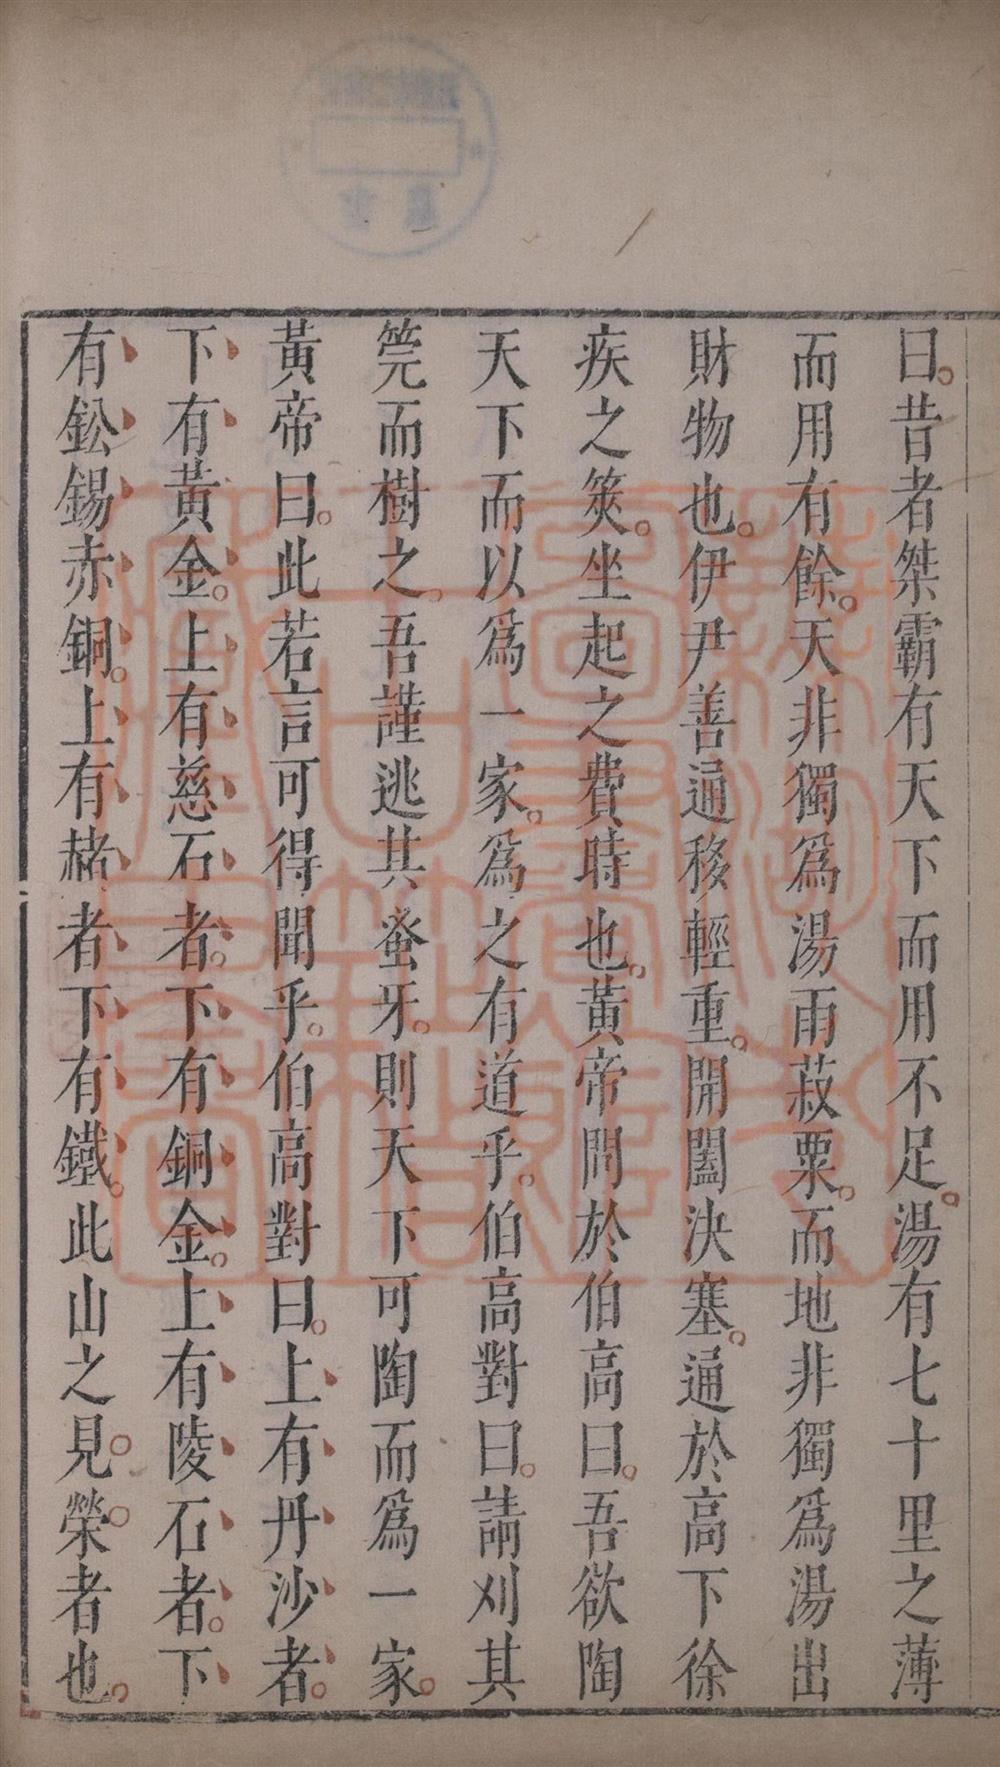 曰昔者桀霸有天下而用不足湯有七十里之薄
而用有餘天非獨爲湯雨菽粟而地非獨爲湯出
財物也伊尹善通移輕重開闔決塞通於高下徐
疾之筴坐起之費時也黃帝問於伯高曰吾欲陶
天下而以爲一家爲之有道乎伯高對曰請刈其
筦而樹之吾謹逃其蚤牙則天下可陶而爲一家
黃帝曰此若言可得聞乎伯高對曰上有丹沙者
下有黃金上有慈石者下有銅金上有陵石者下
有鈆錫赤銅上有赭者下有鐵此山之見榮者也